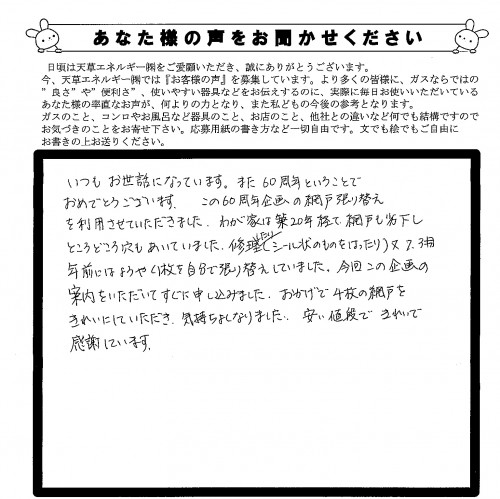 あなた様の声をお聞かせください
日頃は天草エネルギー㈱をご愛顧いただき、誠にありがとうございます。
今、天草エネルギー㈱では『お客様の声』を募集しています。より多くの皆様に、ガスならではの
"良さ"や"便利さ"、使いやすい器具などをお伝えするのに、実際に毎日お使いいただいている
あなた様の率直なお声が、何よりの力となり、また私どもの今後の参考となります。
ガスのこと、コンロやお風呂など器具のこと、お店のこと、他社との違いなど何でも結構ですので
お気づきのことをお寄せ下さい。応募用紙の書き方など一切自由です。文でも絵でもご自由に
お書きの上お送りください。
いつも お世話になっています。また 60周年ということで
おめでとうございます。 この60周年企画の網戸張り替え
を利用させていただきました。わが家は築20年経て、網戸も劣下し
ところどころ穴もあいていました。修理したり(シール状のものをはったり)
年前にはようやく1枚を自分で張り替えしていました。今回この企画の
案内をいただいてすぐに申し込みました。おかげで4枚の網戸を
きれいにしていただき、気持ちよくなりました。安い値段で きれいで
感謝しています。